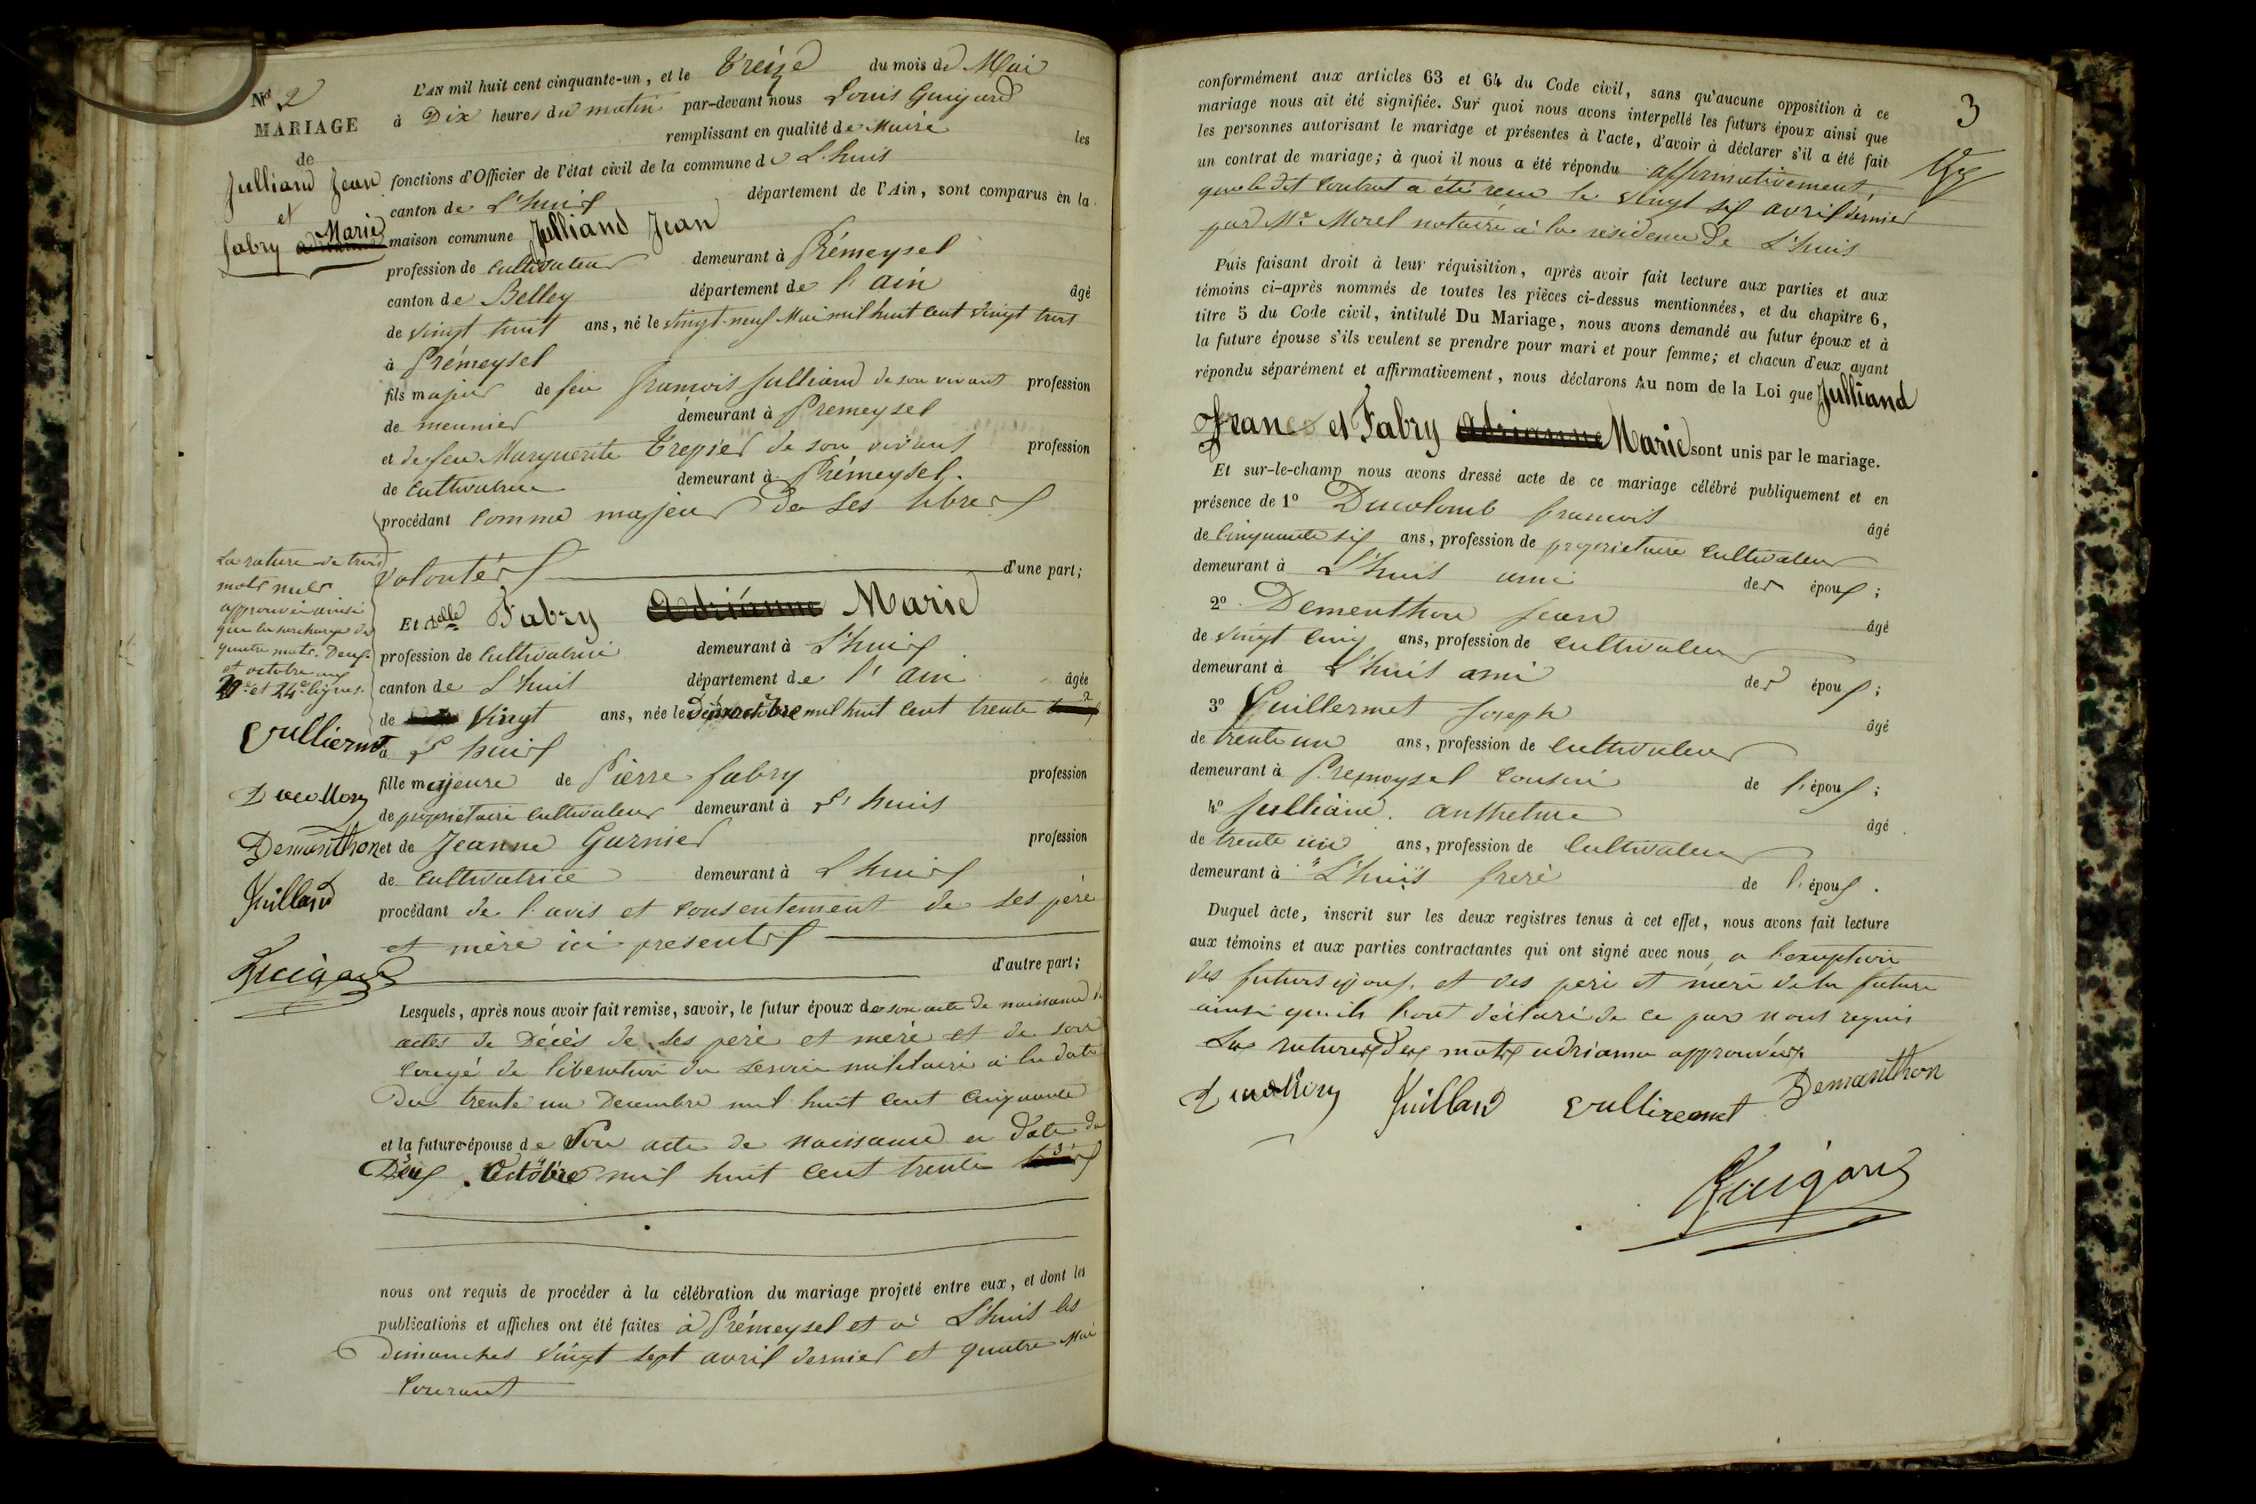 No 2
MARIAGE
de
Julliand Jean
et
Marie
fabry
L'AN mil huit cent cinquante-un, et le Treize du mois de Mai
à Dix heures du matin par-devant nous Louis Guigard
remplissant en qualité de Maire les
fonctions d'Officier de l'état civil de la commune de L'huis
canton de L'huis département de l'Ain, sont comparus en la
maison commune Julliand Jean
profession de cultivateur demeurant à Prémeysel
canton de Belley département de l'ain âgé
de vingt huit ans, né le vingt-neuf Mai mil huit cent vingt trois
à Prémeysel
fils majeur de feu francois Julliand de son vivant profession
de meunier demeurant à Premeysel
et de feu Marguerite Trepier de son vivant profession
de cultivatrice demeurant à Prémeysel.
procédant comme majeur de ses libres
volontés d'une part;
La rature de trois
mots nuls
approuvée ainsi
que la surcharge de
quatre mots. Deux
et octobre aux
20e et 24e lignes.
Et delle Fabry Adrianne Marie
profession de cultivatrice demeurant à L'huis
canton de L'huis département de l'ain âgée
de vingt ans, née le Deux octobre mil huit cent trente
à L'huis
fille majeure de Pierre fabry profession
de proprietaire cultivateur demeurant à L'huis
et de Jeanne Garnier profession
de cultivatrice demeurant à L'huis
procédant de l'avis et consentement de ses père
et mère ici presents
d'autre part;
Vulliermet
Ducollomy
Demanthon
Juilland
Guigard
Lesquels, après nous avoir fait remise, savoir, le futur époux de son acte de naissance
actes de Décès de ses père et mère et de son
congé de libération du service militaire à la date
du trente un Decembre mil huit cent cinquante
et la future épouse de Son acte de naissance en date du
Deux Octobre mil huit cent trente
nous ont requis de procéder à la célébration du mariage projeté entre eux, et dont les
publications et affiches ont été faites à Prémeysel et à L'huis les
dimanches vingt sept avril dernier et quatre Mai
courant
3
conformément aux articles 63 et 64 du Code civil, sans qu'aucune opposition à ce
mariage nous ait été signifiée. Sur quoi nous avons interpellé les futurs époux ainsi que
les personnes autorisant le mariage et présentes à l'acte, d'avoir à déclarer s'il a été fait
un contrat de mariage; à quoi il nous a été répondu affirmativement,
que le dit contrat a été recu le vingt six avril dernier
par Me Morel notaire à la residence de L'huis
Puis faisant droit à leur réquisition, après avoir fait lecture aux parties et aux
témoins ci-après nommés de toutes les pièces ci-dessus mentionnées, et du chapitre 6,
titre 5 du Code civil, intitulé Du Mariage, nous avons demandé au futur époux et à
la future épouse s'ils veulent se prendre pour mari et pour femme; et chacun d'eux ayant
répondu séparément et affirmativement, nous déclarons Au nom de la Loi que Julliand
Jean et Fabry Adrianne Marie sont unis par le mariage.
Et sur-le-champ nous avons dressé acte de ce mariage célébré publiquement et en
présence de 1o Ducolomb francois âgé
de Cinquante six ans, profession de proprietaire cultivateur
demeurant à L'huis ami des époux;
2o Dementhon Jean âgé
de vingt cinq ans, profession de cultivateur
demeurant à L'huis ami des époux;
3o Vuillermet Joseph âgé
de trente un ans, profession de cultivateur
demeurant à Premeysel cousin de l'époux;
4o Julliand. anthelme âgé
de trente un ans, profession de Cultivateur
demeurant à L'huis frere de l'époux.
Duquel acte, inscrit sur les deux registres tenus à cet effet, nous avons fait lecture
aux témoins et aux parties contractantes qui ont signé avec nous, a l'exception
des futurs époux, et des pere et mere de la future
ainsi qu'ils l'ont déclaré de ce par nous requis
Les ratures des mots adrianne approuvées.
Ducollomy Juilland Vulliermet Demanthon
Guigard